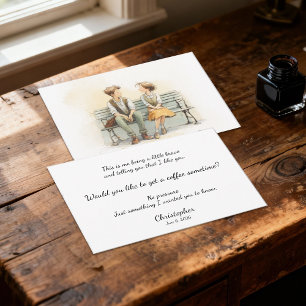 This is me being a little brave
and telling you that I like you.
Would you like to get a coffee sometime?
No pressure.
Just something I wanted you to know.
Christopher
Jun 6, 2026